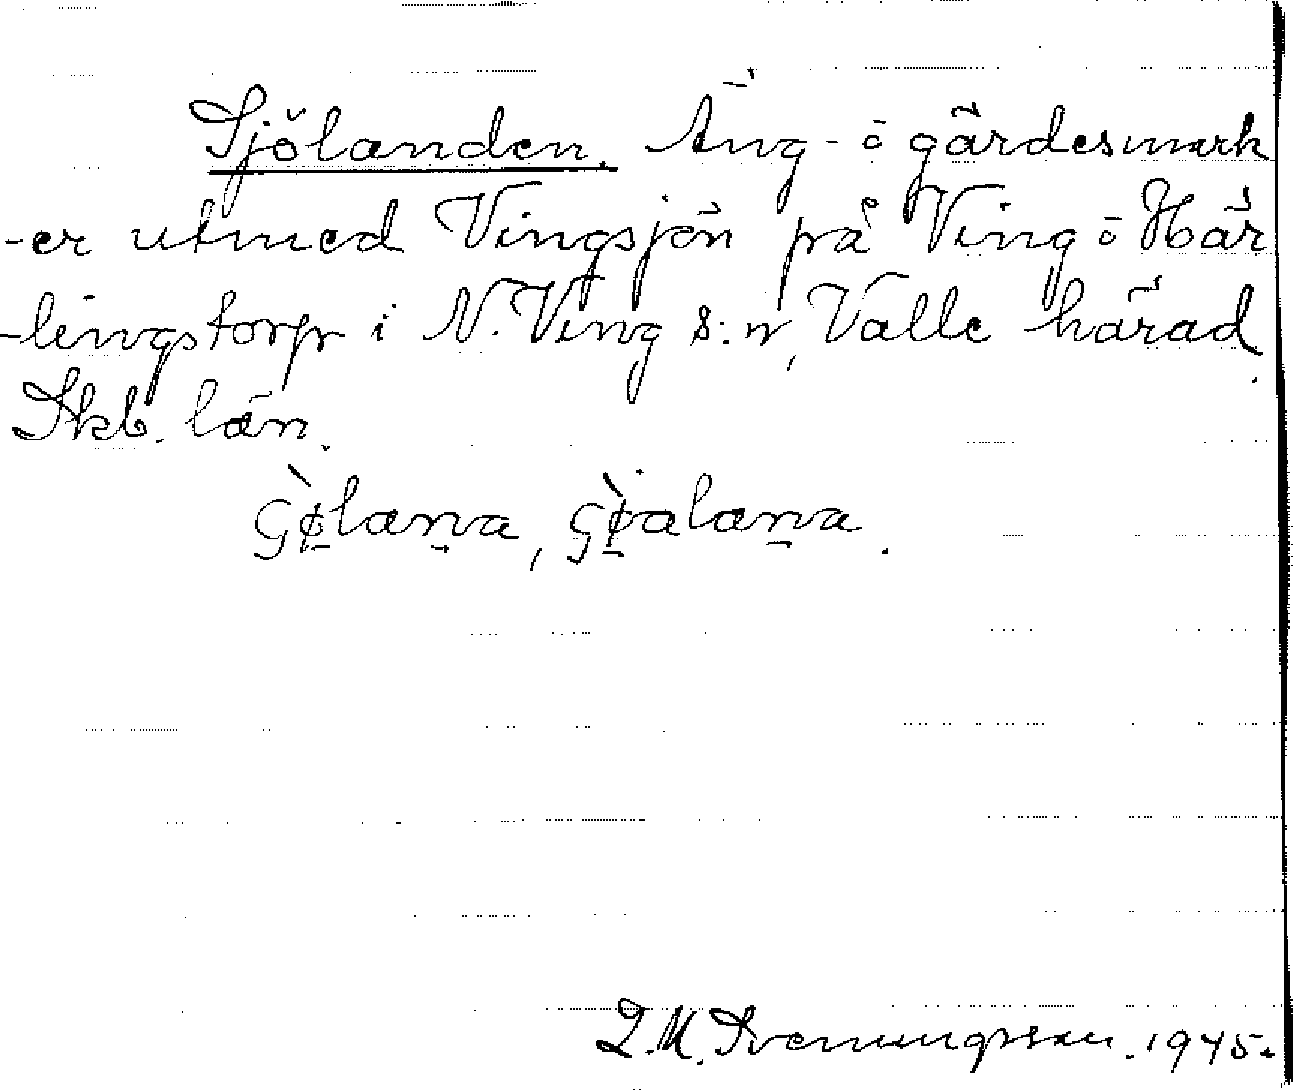 Sjölanden. Äng- ō gärdesmark
-er utmed Vingsjön på Ving ō Här
-lingstorp i N. Ving s:n, Valle härad.
Skb. län.
L.M. Svenungsson. 1945.